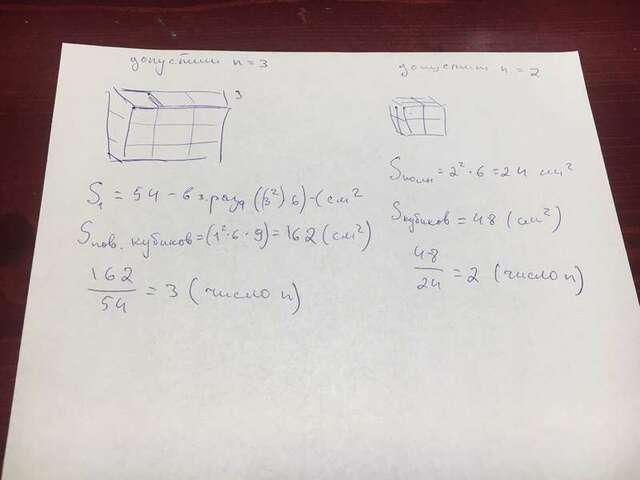 допустим n = 3
3
S₁ = 54 - в 3. раз ((3²) 6) - (см²
Sпов. кубиков = (1² · 6 · 9) = 162 (см²)
162/54 = 3 (число n)
допустим n = 2
Sполн = 2² · 6 = 24 см²
Sкубиков = 48 (см²)
48/24 = 2 (число n)